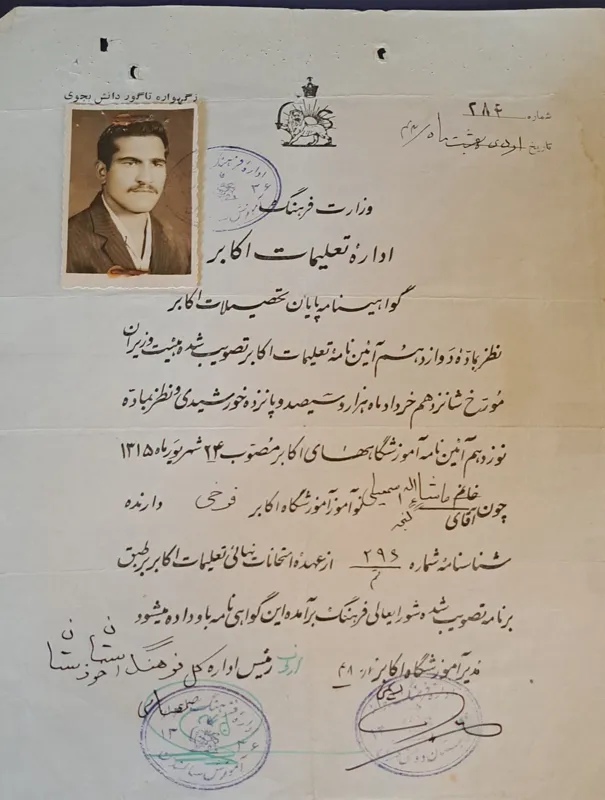 ز گهواره تا گور دانش بجوی
شماره ۲۸۴
تاریخ اردی بهشت ماه ۴۴
وزارت فرهنگ
اداره تعلیمات اکابر
گواهینامه پایان تحصیلات اکابر
نظر بمادّه دوازدهم آئین نامه تعلیمات اکابر تصویب شده هیئت وزیران
مورّخ شانزدهم خرداد ماه هزار و سیصد و پانزده خورشیدی و نظر بمادّه
نوزدهم آئین نامه آموزشگاههای اکابر مصوّب ۲۴ شهریور ماه ۱۳۱۵
چون خانم آقای ماشاءاله اسمعیلی نوآموز آموزشگاه اکابر فرخی دارنده
شناسنامه شماره ۲۹۶ از عهده امتحانات نهائی تعلیمات اکابر بر طبق
برنامه تصویب شده شورایعالی فرهنگ برآمده این گواهی نامه باو داده میشود
مدیر آموزشگاه اکابر رئیس اداره کل فرهنگ استان خوزستان
اداره فرهنگ